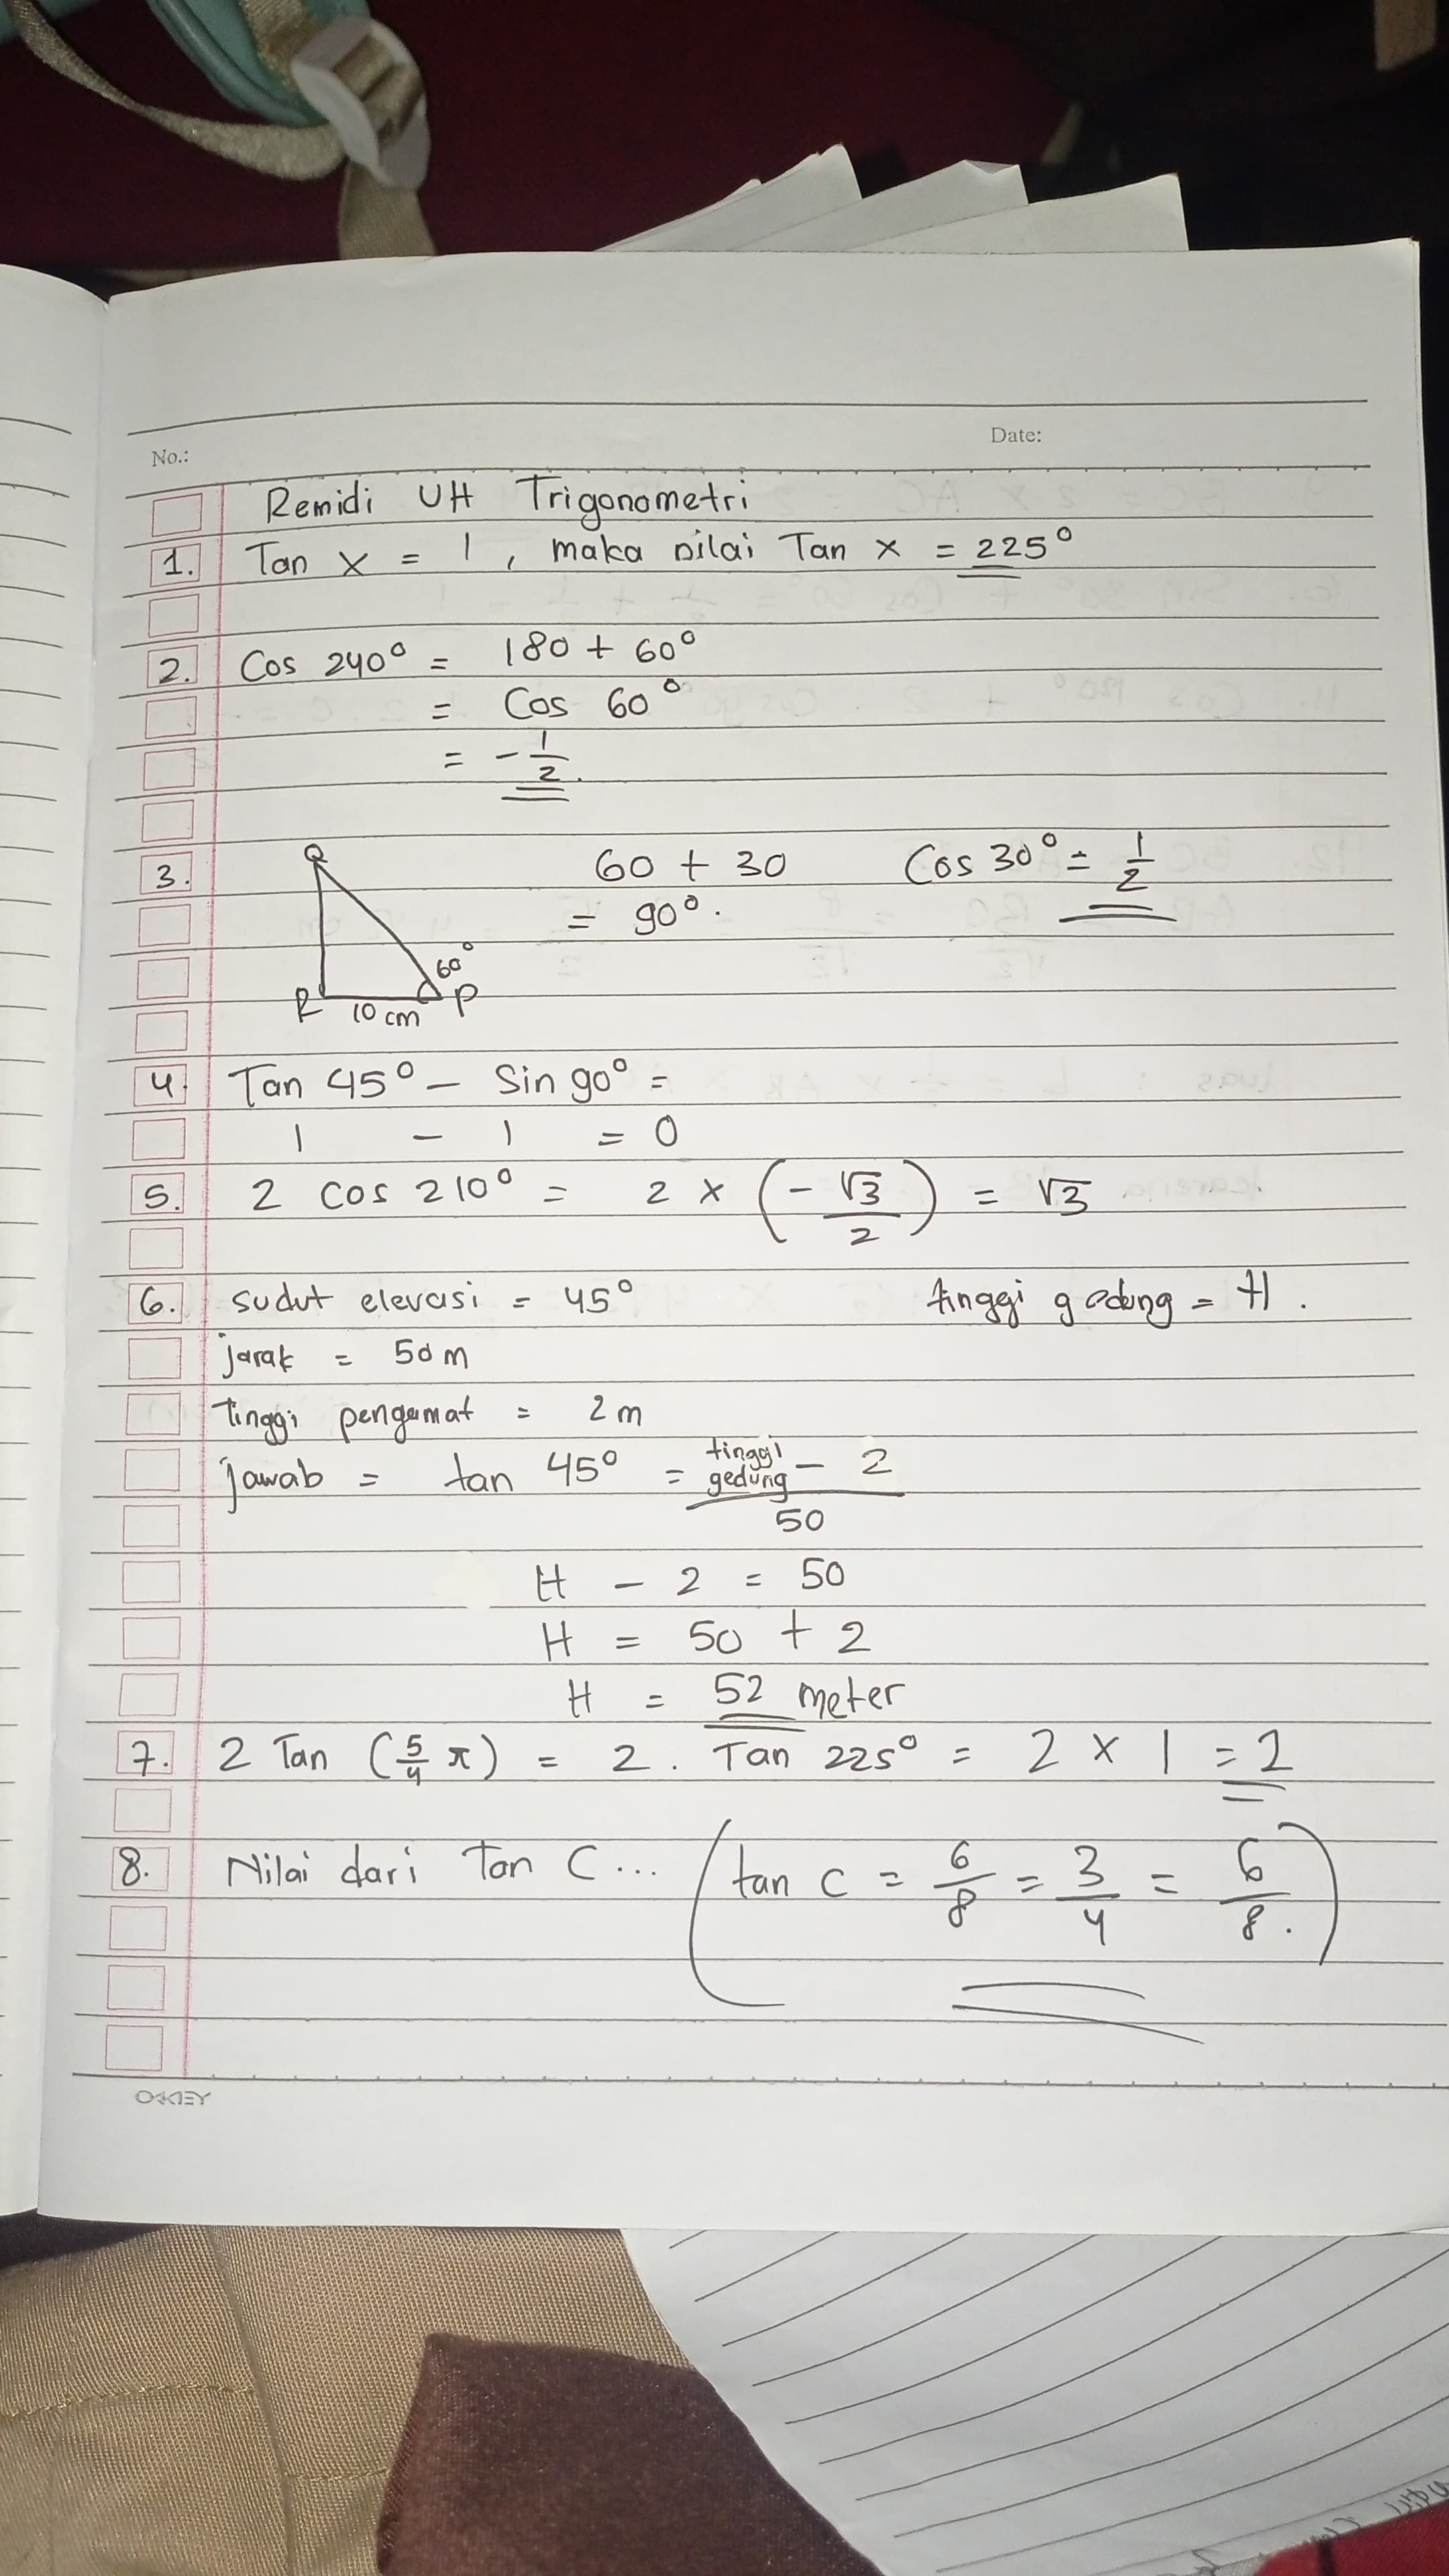 No.:
Date:
Remidi UH Trigonometri
1. Tan x = 1 , maka nilai Tan x = 225°
2. Cos 240° = 180 + 60°
= Cos 60°
= - 1/2
3. Q 60 + 30 Cos 30° = 1/2
= 90°.
60°
R 10 cm P
4. Tan 45° - Sin 90° =
1 - 1 = 0
5. 2 cos 210° = 2 x (- √3/2) = √3
6. sudut elevasi = 45° tinggi gedung = H.
jarak = 50 m
tinggi pengamat = 2 m
jawab = tan 45° = tinggi gedung - 2 / 50
H - 2 = 50
H = 50 + 2
H = 52 meter
7. 2 Tan (5/4 π) = 2 . Tan 225° = 2 x 1 = 2
8. Nilai dari Tan C... (tan C = 6/8 = 3/4 = 6/8.)
OKEY